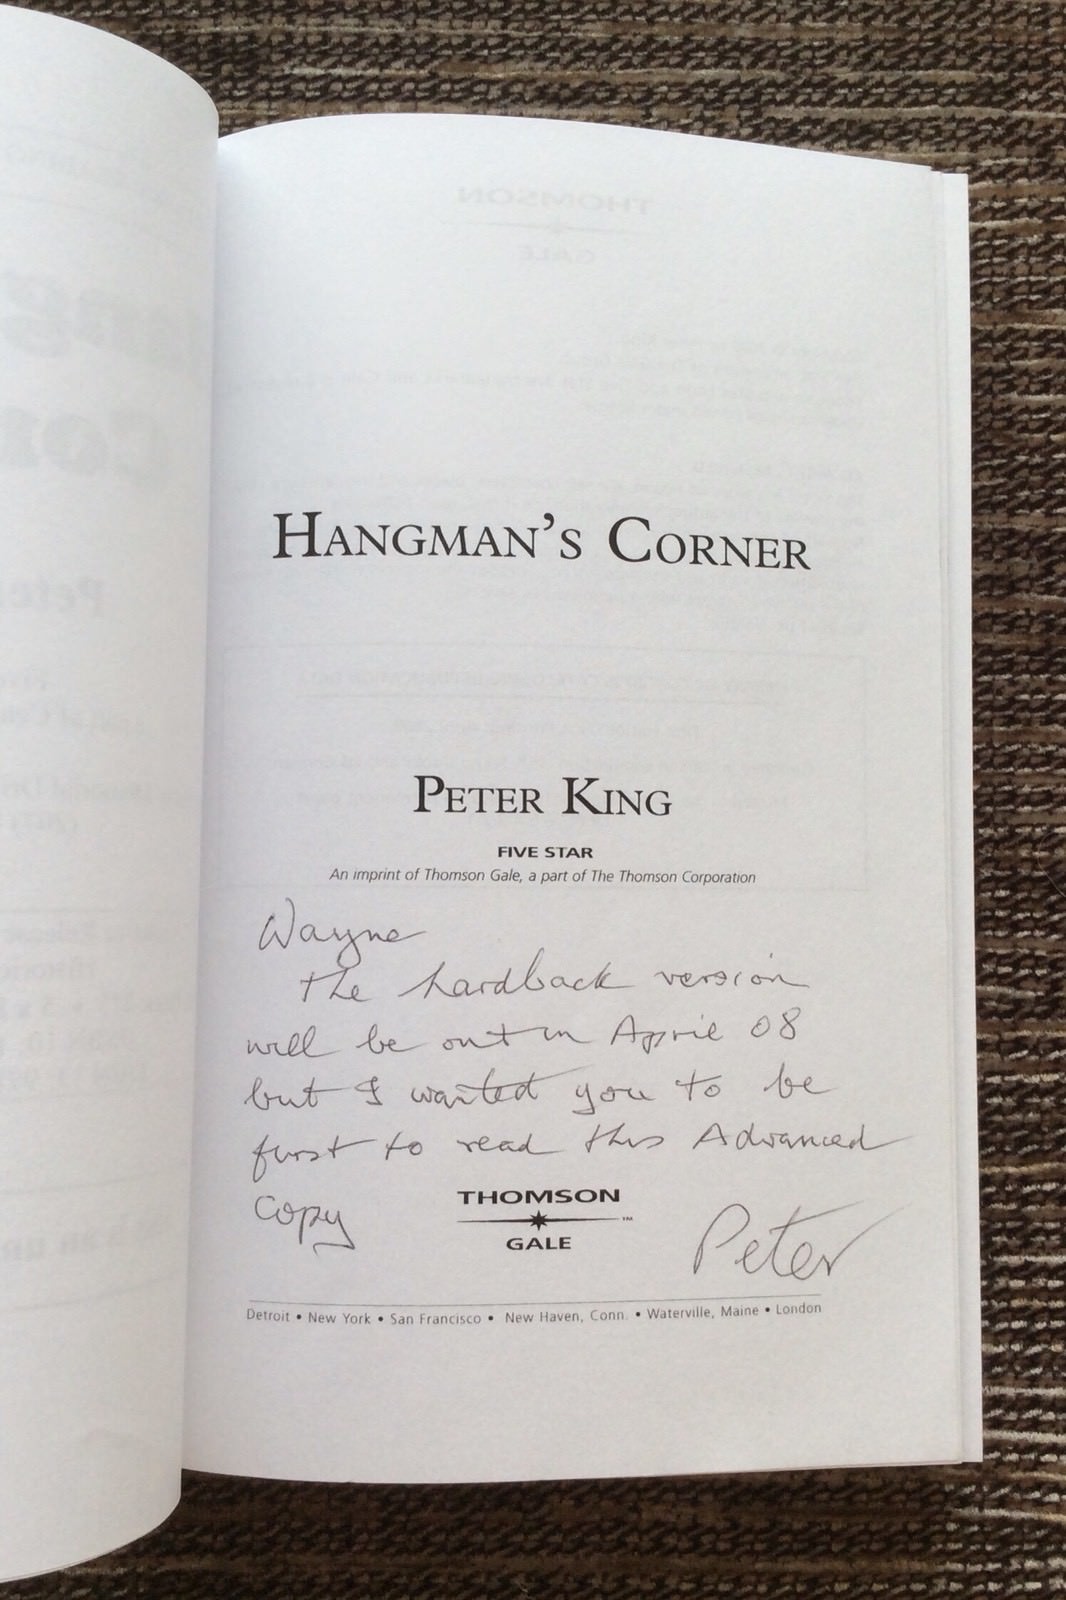 HANGMAN'S CORNER
PETER KING
FIVE STAR
An imprint of Thomson Gale, a part of The Thomson Corporation
Wayne
the hardback version
will be out in April 08
but I wanted you to be
first to read this Advanced
copy
THOMSON
™
GALE
Peter
Detroit • New York • San Francisco • New Haven, Conn. • Waterville, Maine • London